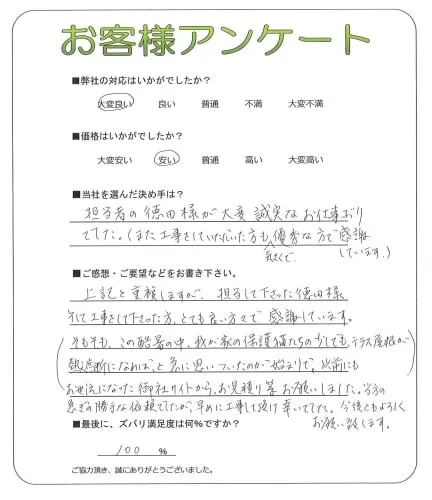 お客様アンケート
■弊社の対応はいかがでしたか?
大変良い 良い 普通 不満 大変不満
■価格はいかがでしたか?
大変安い 安い 普通 高い 大変高い
■当社を選んだ決め手は?
担当者の徳田様が大変誠実なお仕事ぶり
でした。(また工事をしていただいた方も気さくで、優秀な方で感謝
しています。)
■ご感想・ご要望などをお書き下さい。
上記と重複しますが、担当して下さった徳田様
そして工事をして下さった方、とても良い方々で感謝しています。
そもそも、この酷暑の中、我が家の保護猫たちの少しでも、テラス屋根が
熱遮断になれば、と急に思いついたのが始まりで、以前にも
お世話になった御社サイトから、お見積り等お願いしました。当方の
急ぎの勝手な依頼でしたが、早めに工事して頂け幸いでした。今後ともよろしく
お願い致します。
■最後に、ズバリ満足度は何%ですか?
100 %
ご協力頂き、誠にありがとうございました。